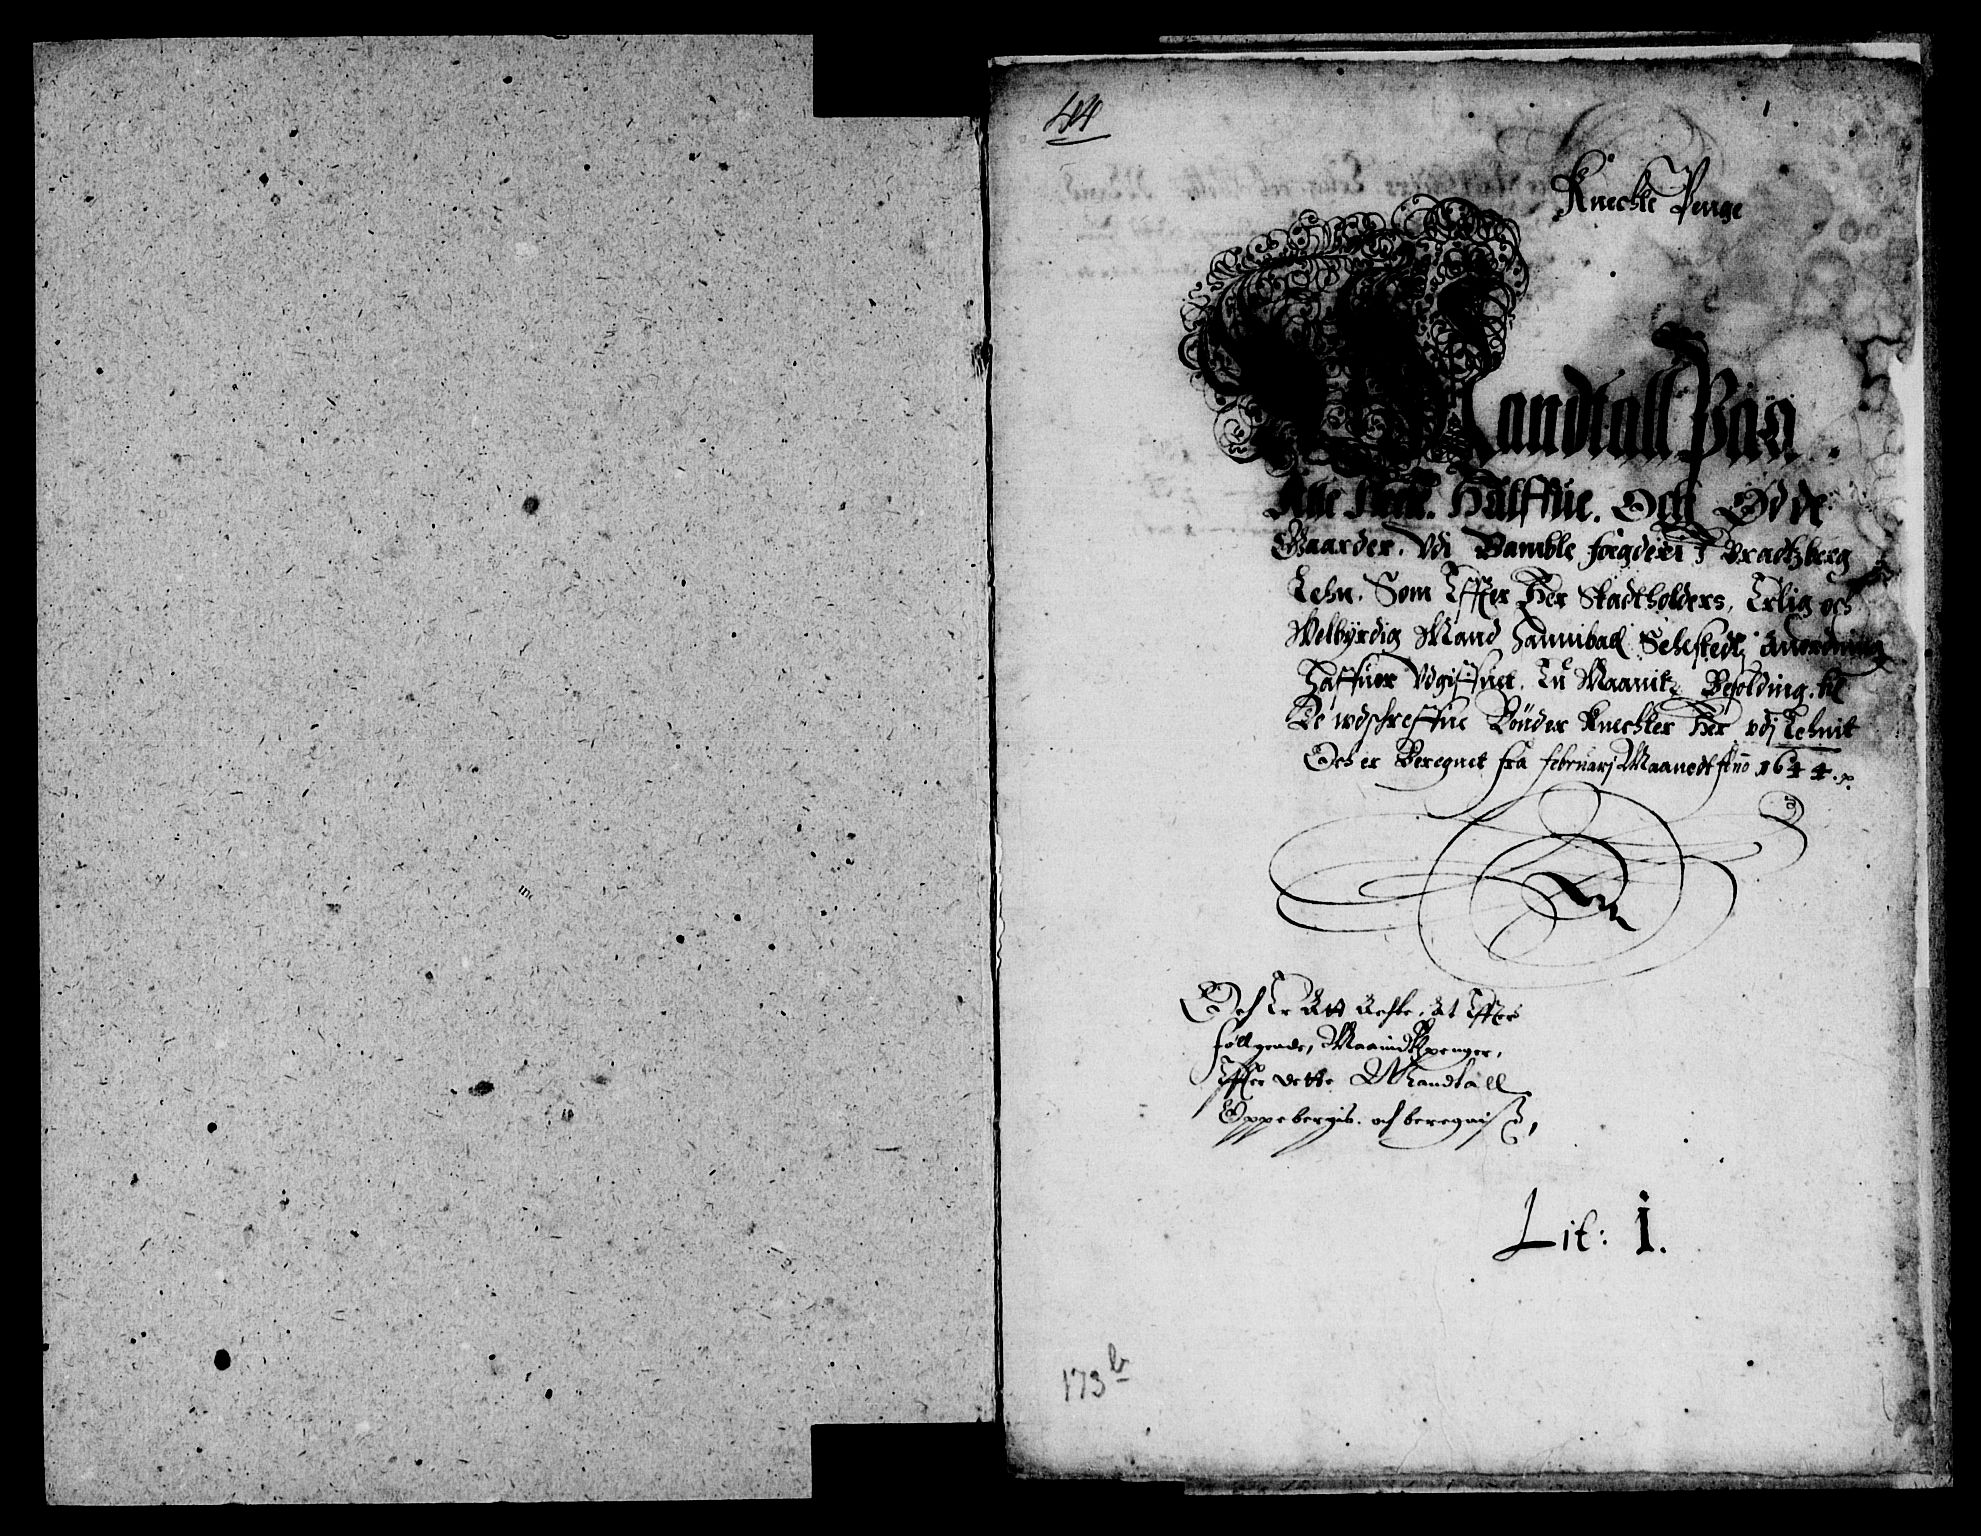 44
1
Knechte Penge
Mandtall Paa
Alle Heele. Halffue. Och Ødde
Gaarder. Vdi Bamble fogderi i Bradtzberg
Lehn. Som Effter Her Stadtholders, Erlig och
Welbyrdig Mand Hannibal Sehestedtz anordning
Haffuer Vdgiffuet. En Maanitz Besolding. til
De wdschreffne Bønder Knechter Her vdj Lehnit
Och er Beregnet fra februarj Maanedt Ano 1644.
Och Er Att Achte, At Effter
föllgende, Maanidtzpenger,
Effter dette Mandtall
Oppebergis. och beregnis
Lit: I.
173 b